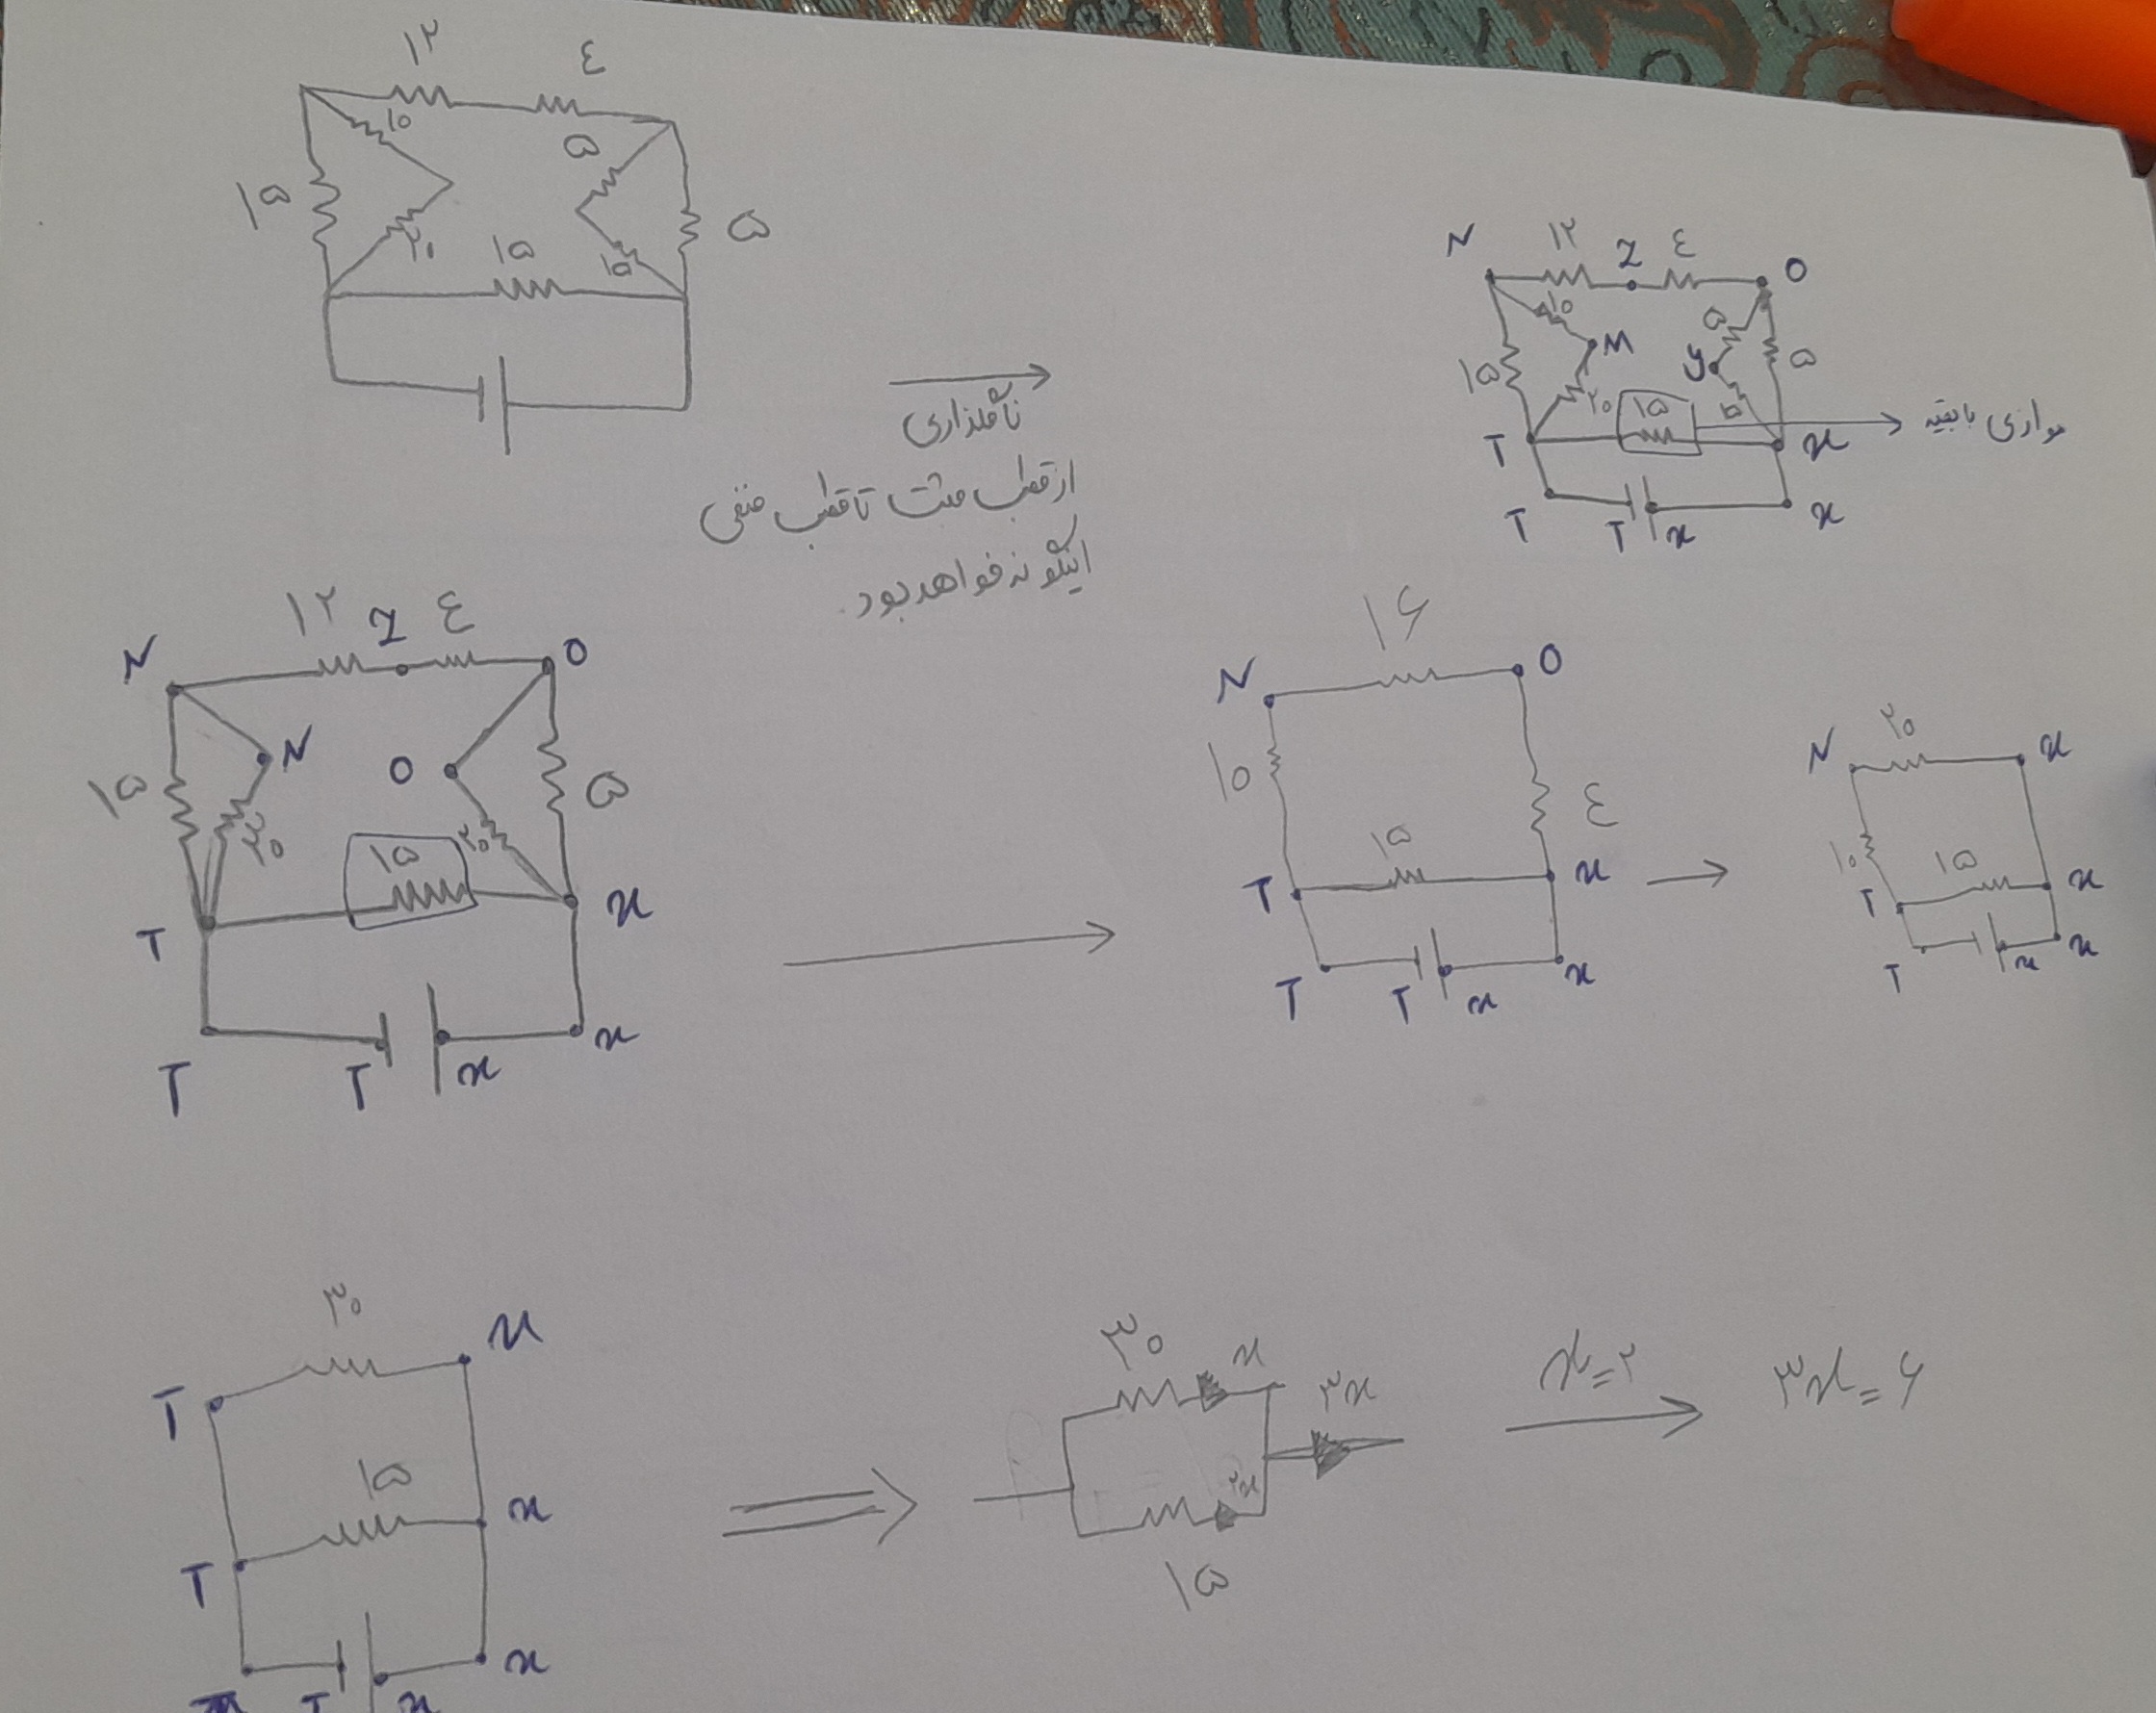 ۱۲ ٤
۱۰ ۵
۱۵ ۵
۲۰ ۱۵ ۱۵
نامگذاری
از قطب مثبت تا قطب منفی
اینگونه خواهد بود.
N ۱۲ Z ٤ O
۱۰ ۵
M y ۵
۱۵
۲۰ ۱۵ ۱۵
T x موازی با بقیه
T T x x
N ۱۲ Z ٤ O
N O
۱۵ ۲۰ ۱۵ ۲۰ ۵
T x
T T x x
۱۶
N O
۱۰ ٤
۱۵
T x
T T x x
۲۰
N x
۱۰ ۱۵
T x
T x x
۳۰
T x
۱۵
T x
T T x x
۳۰ x
۳x
۲x
۱۵
x=۲
۳x=۶